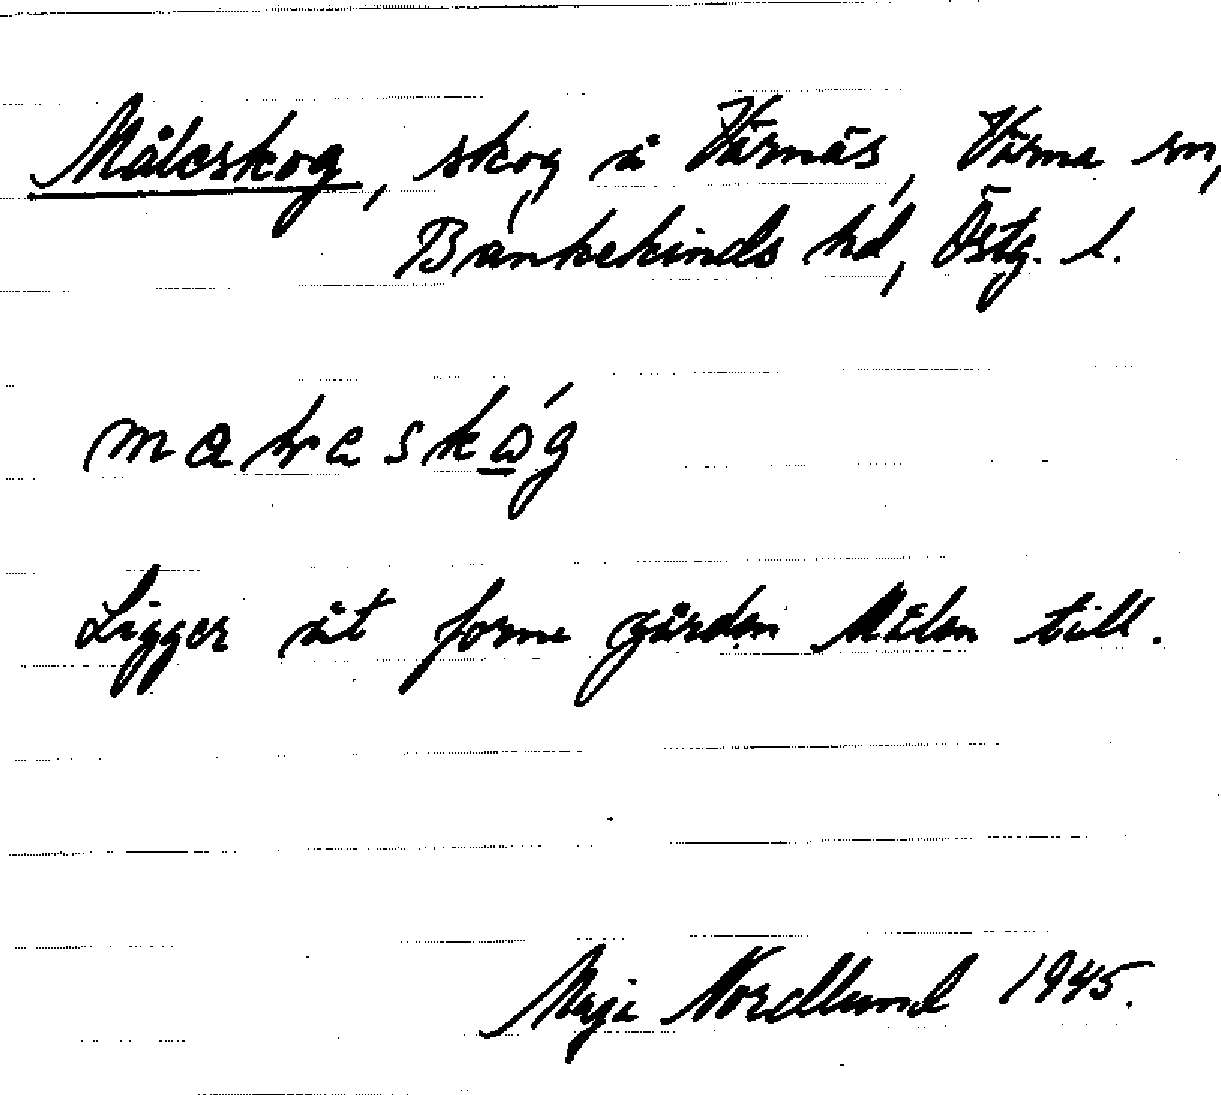 Målcskog, skog å Värnäs, Värna sn,
Bankekinds hd, Östg. l.
Ligger åt forne gården Målen till.
Maja Nordlund 1945.